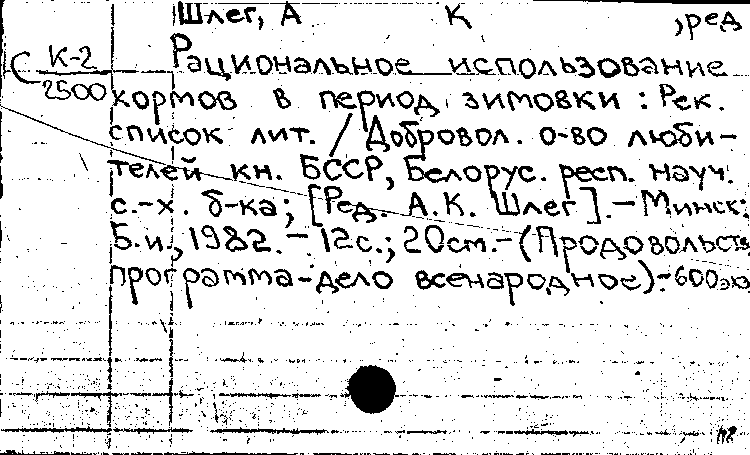 Шлег, А К , ред
С К-2
2500
Рациональное использование
кормов в период зимовки : Рек.
список лит. / Добровол. о-во люби-
телей кн. БССР, Белорус. респ. науч.
с.-х. б-ка; [Ред. А.К. Шлег]. - Минск:
Б.и., 1982. - 12с.; 20см. - (Продовольств
программа-дело всенародное). - 600 экз